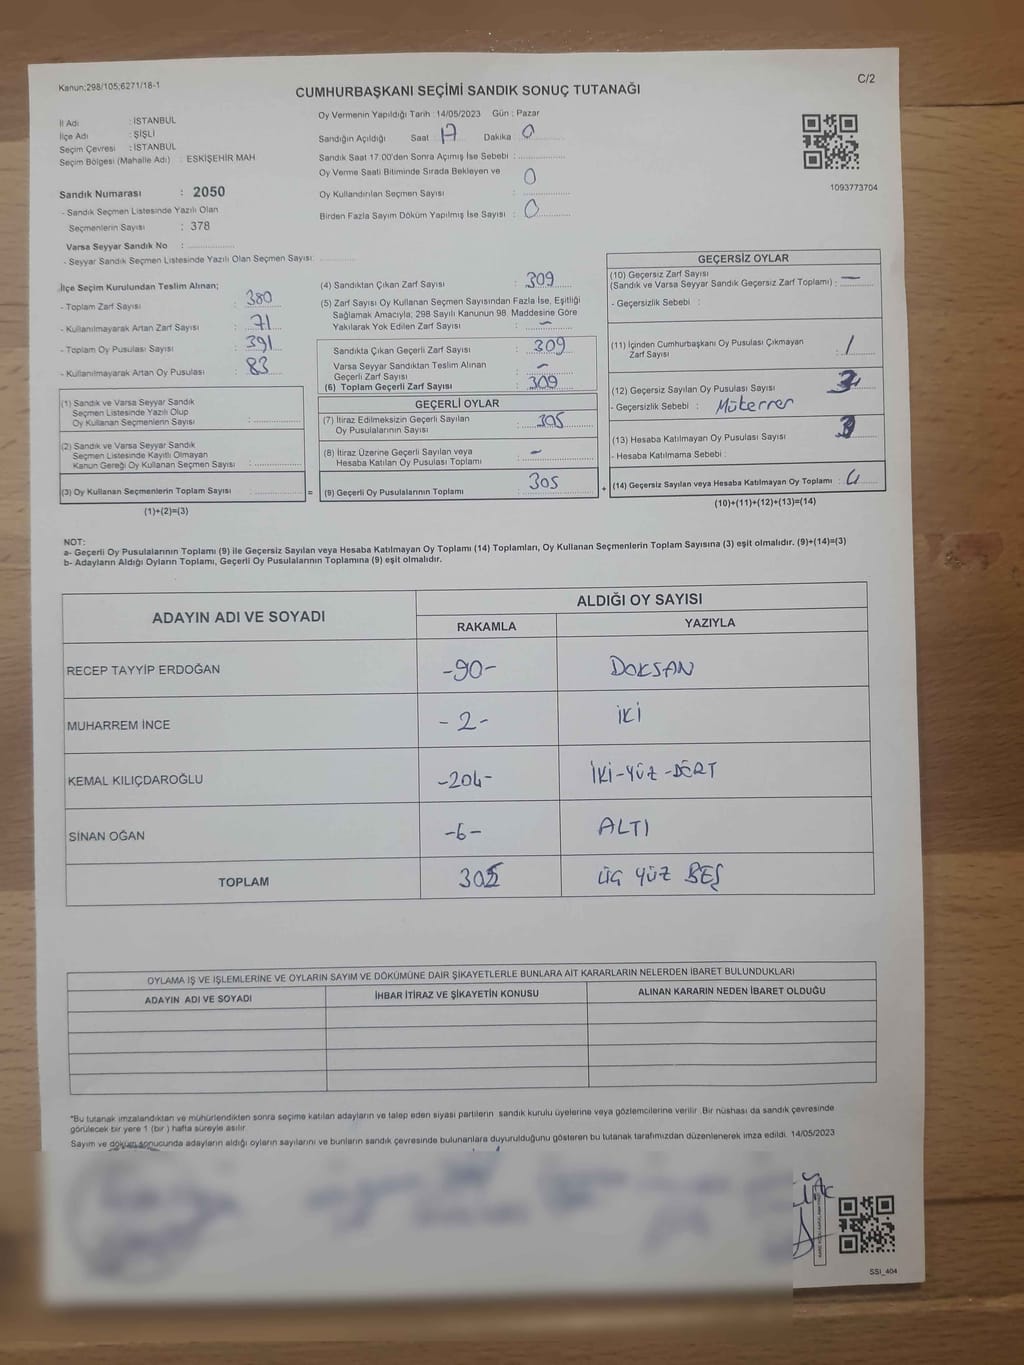 Kanun:298/105;6271/18-1
C/2
CUMHURBAŞKANI SEÇİMİ SANDIK SONUÇ TUTANAĞI
İl Adı : İSTANBUL
İlçe Adı : ŞİŞLİ
Seçim Çevresi : İSTANBUL
Seçim Bölgesi (Mahalle Adı) : ESKİŞEHİR MAH
Sandık Numarası : 2050
- Sandık Seçmen Listesinde Yazılı Olan
Seçmenlerin Sayısı : 378
Varsa Seyyar Sandık No :
- Seyyar Sandık Seçmen Listesinde Yazılı Olan Seçmen Sayısı:
Oy Vermenin Yapıldığı Tarih : 14/05/2023 Gün : Pazar
Sandığın Açıldığı Saat 17 Dakika 0
Sandık Saat 17.00'den Sonra Açılmış İse Sebebi :
Oy Verme Saati Bitiminde Sırada Bekleyen ve
Oy Kullandırılan Seçmen Sayısı : 0
Birden Fazla Sayım Döküm Yapılmış İse Sayısı : 0
1093773704
İlçe Seçim Kurulundan Teslim Alınan;
- Toplam Zarf Sayısı : 380
- Kullanılmayarak Artan Zarf Sayısı : 71
- Toplam Oy Pusulası Sayısı : 391
- Kullanılmayarak Artan Oy Pusulası : 83
(1) Sandık ve Varsa Seyyar Sandık
Seçmen Listesinde Yazılı Olup
Oy Kullanan Seçmenlerin Sayısı :
(2) Sandık ve Varsa Seyyar Sandık
Seçmen Listesinde Kayıtlı Olmayan
Kanun Gereği Oy Kullanan Seçmen Sayısı :
(3) Oy Kullanan Seçmenlerin Toplam Sayısı :
(1)+(2)=(3)
=
(4) Sandıktan Çıkan Zarf Sayısı : 309
(5) Zarf Sayısı Oy Kullanan Seçmen Sayısından Fazla İse, Eşitliği
Sağlamak Amacıyla; 298 Sayılı Kanunun 98. Maddesine Göre
Yakılarak Yok Edilen Zarf Sayısı : -
Sandıkta Çıkan Geçerli Zarf Sayısı : 309
Varsa Seyyar Sandıktan Teslim Alınan
Geçerli Zarf Sayısı : -
(6) Toplam Geçerli Zarf Sayısı : 309
GEÇERLİ OYLAR
(7) İtiraz Edilmeksizin Geçerli Sayılan
Oy Pusulalarının Sayısı : 305
(8) İtiraz Üzerine Geçerli Sayılan veya
Hesaba Katılan Oy Pusulası Toplamı : -
(9) Geçerli Oy Pusulalarının Toplamı : 305
+
GEÇERSİZ OYLAR
(10) Geçersiz Zarf Sayısı
(Sandık ve Varsa Seyyar Sandık Geçersiz Zarf Toplamı) : —
- Geçersizlik Sebebi :
(11) İçinden Cumhurbaşkanı Oy Pusulası Çıkmayan
Zarf Sayısı : 1
(12) Geçersiz Sayılan Oy Pusulası Sayısı :
- Geçersizlik Sebebi : Mükerrer
(13) Hesaba Katılmayan Oy Pusulası Sayısı :
- Hesaba Katılmama Sebebi :
(14) Geçersiz Sayılan veya Hesaba Katılmayan Oy Toplamı : 4
(10)+(11)+(12)+(13)=(14)
NOT:
a- Geçerli Oy Pusulalarının Toplamı (9) ile Geçersiz Sayılan veya Hesaba Katılmayan Oy Toplamı (14) Toplamları, Oy Kullanan Seçmenlerin Toplam Sayısına (3) eşit olmalıdır. (9)+(14)=(3)
b- Adayların Aldığı Oyların Toplamı, Geçerli Oy Pusulalarının Toplamına (9) eşit olmalıdır.
ADAYIN ADI VE SOYADI
ALDIĞI OY SAYISI
RAKAMLA YAZIYLA
RECEP TAYYİP ERDOĞAN -90- DOKSAN
MUHARREM İNCE -2- İKİ
KEMAL KILIÇDAROĞLU -204- İKİ-YÜZ-DÖRT
SİNAN OĞAN -6- ALTI
TOPLAM 305 ÜÇ YÜZ BEŞ
OYLAMA İŞ VE İŞLEMLERİNE VE OYLARIN SAYIM VE DÖKÜMÜNE DAİR ŞİKAYETLERLE BUNLARA AİT KARARLARIN NELERDEN İBARET BULUNDUKLARI
ADAYIN ADI VE SOYADI İHBAR İTİRAZ VE ŞİKAYETİN KONUSU ALINAN KARARIN NEDEN İBARET OLDUĞU
*Bu tutanak imzalandıktan ve mühürlendikten sonra seçime katılan adayların ve talep eden siyasi partilerin sandık kurulu üyelerine veya gözlemcilerine verilir. Bir nüshası da sandık çevresinde
görülecek bir yere 1 (bir ) hafta süreyle asılır.
Sayım ve döküm sonucunda adayların aldığı oyların sayılarını ve bunların sandık çevresinde bulunanlara duyurulduğunu gösteren bu tutanak tarafımızdan düzenlenerek imza edildi. 14/05/2023
SSI_404